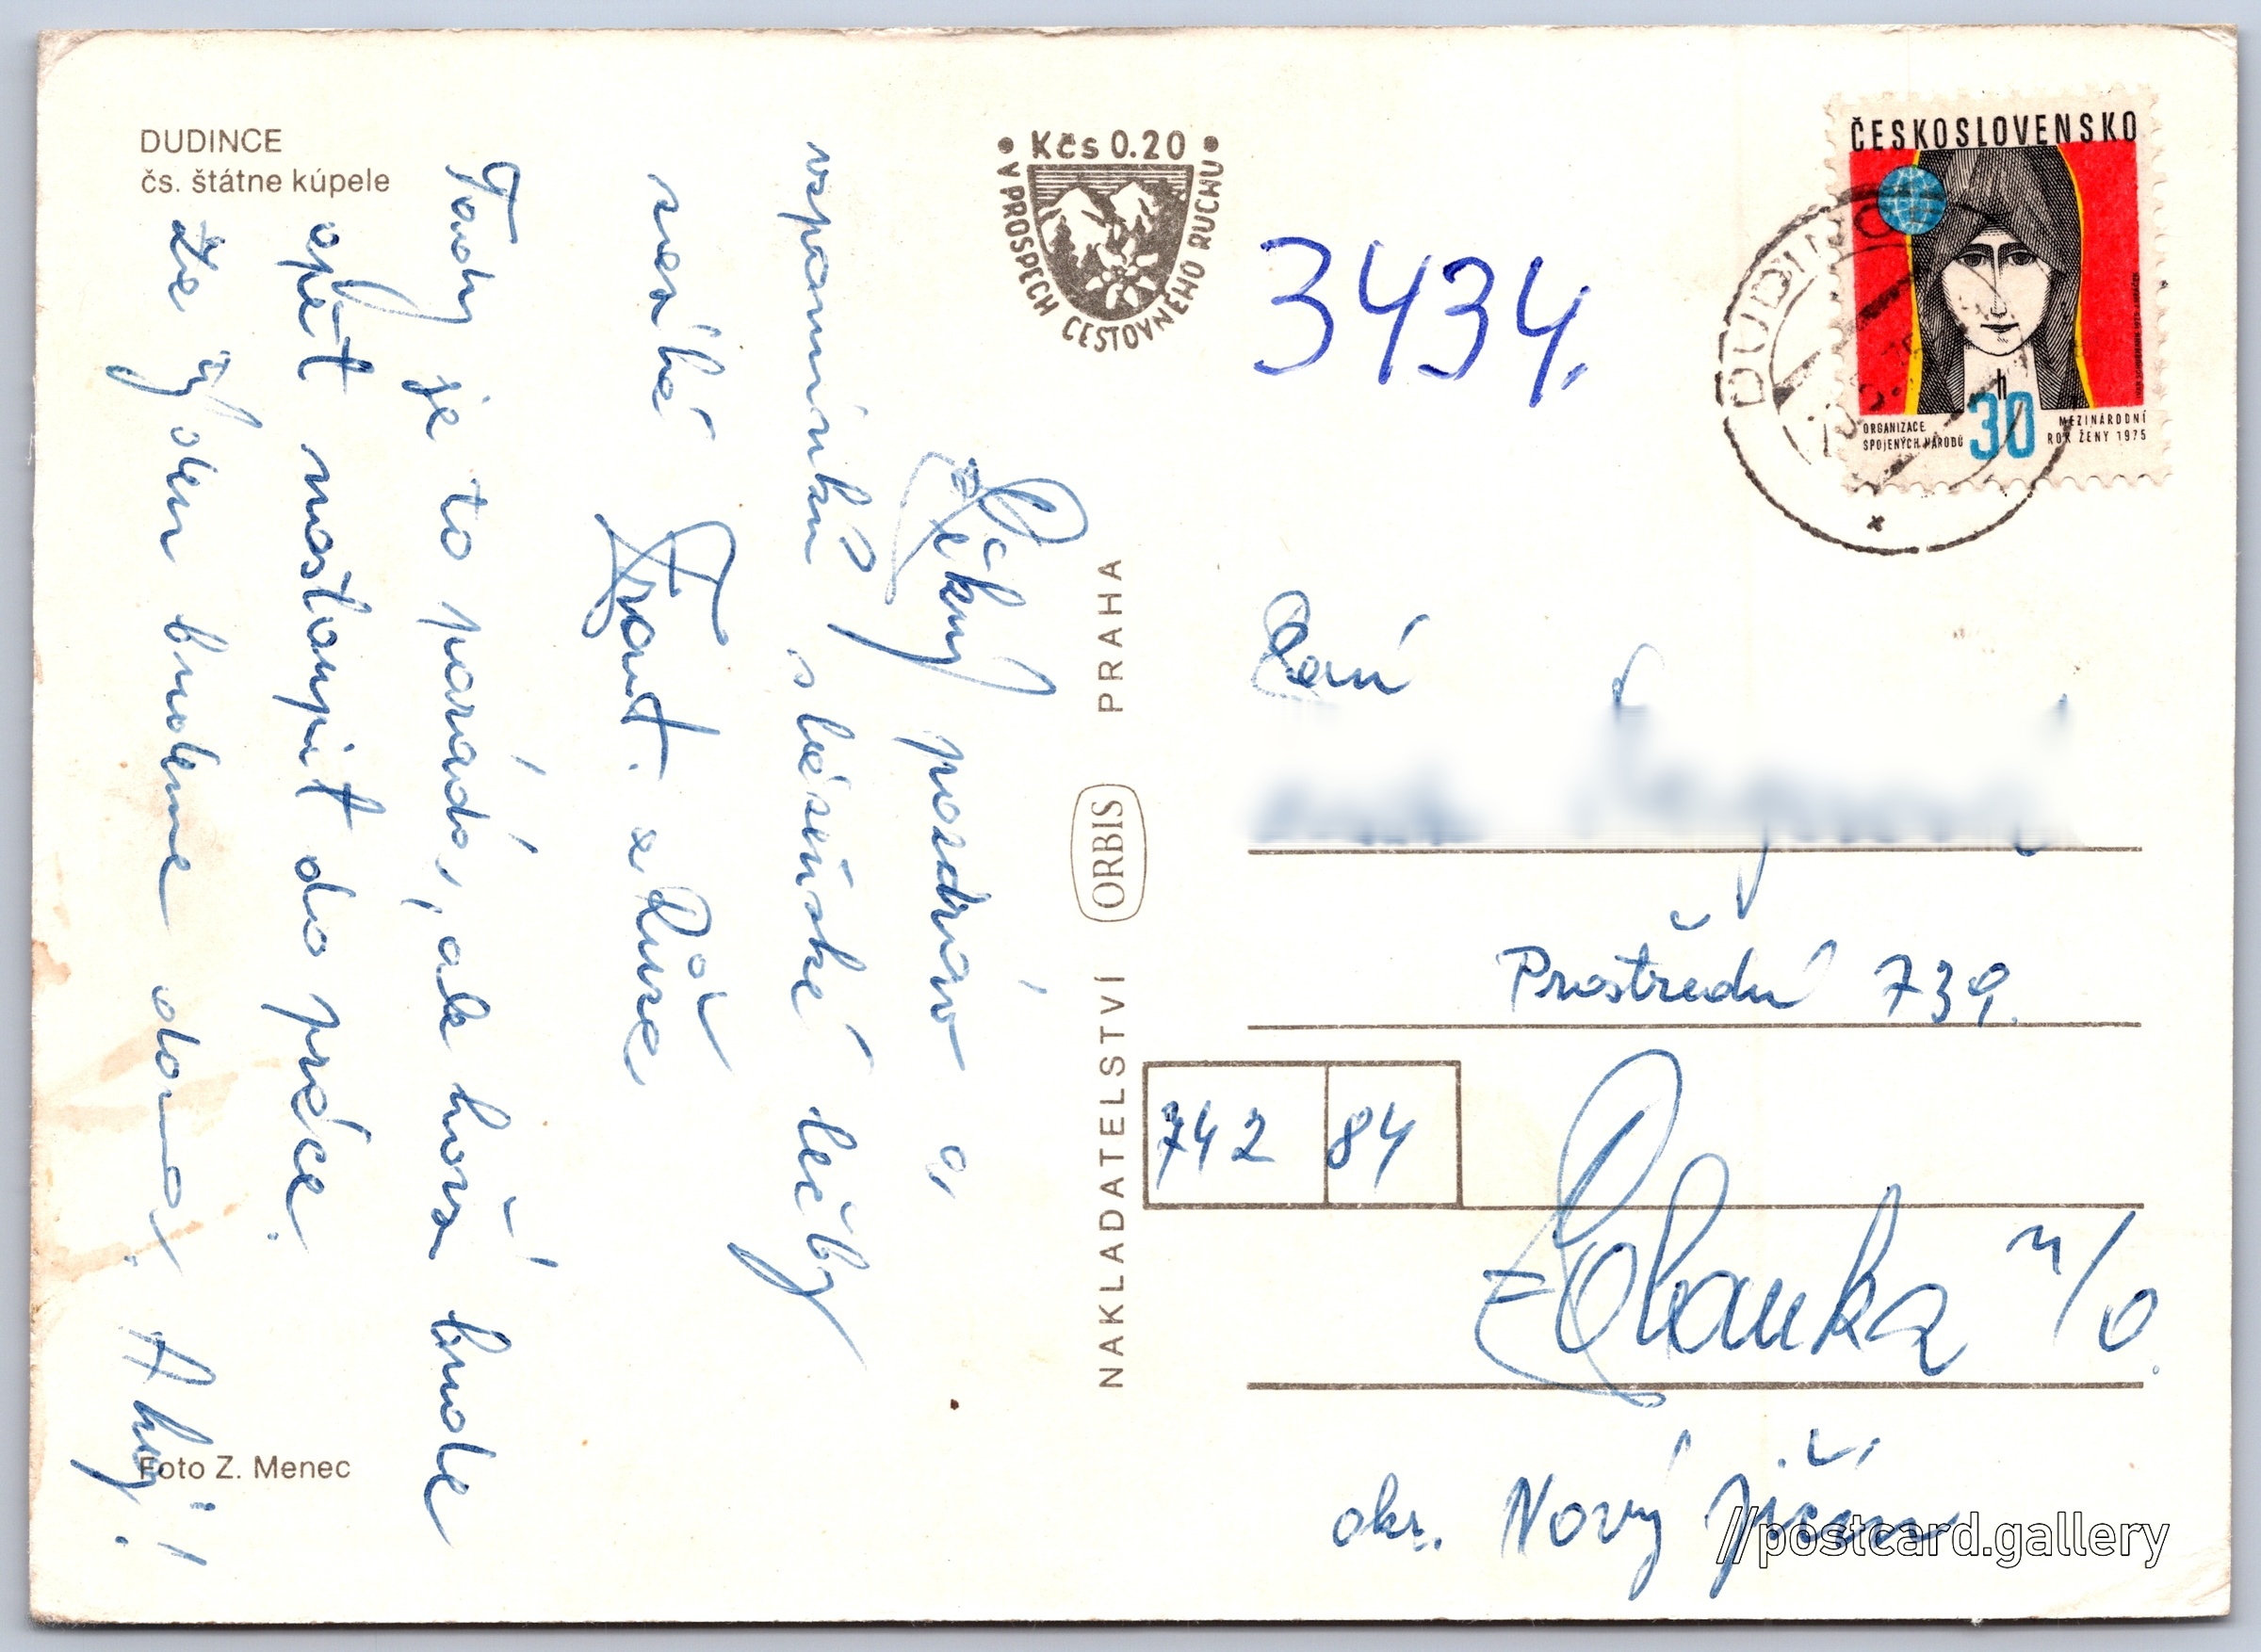 DUDINCE
čs. štátne kúpele
• Kčs 0.20 •
V PROSPECH CESTOVNÉHO RUCHU
3434.
ČESKOSLOVENSKO
h
30
ORGANIZACE
SPOJENÝCH NÁRODŮ
MEZINÁRODNÍ
ROK ŽENY 1975
DUDINCE
Pěkný pozdrav a
vzpomínku s lázeňské léčby
zasílá Frant. a Růža
Tady je to paráda, ale horší bude
opět nastoupit do práce.
Že Jožku budeme doma. Ahoj!
NAKLADATELSTVÍ ORBIS PRAHA
Paní
Prostřední 739.
742 84
Klobauka n/O.
okr. Nový Jičín
Foto Z. Menec
//postcard.gallery